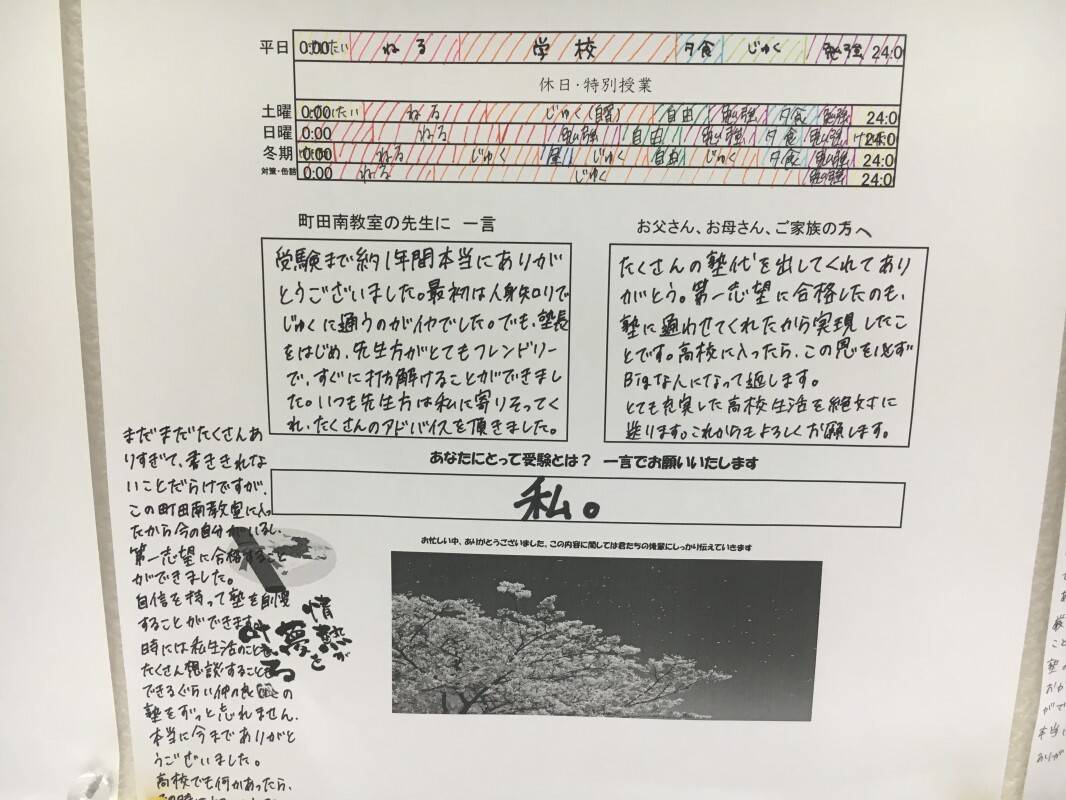 平日 0:00 ねる 学校 夕食 じゅく 勉強 24:0
休日・特別授業
土曜 0:00 ねる じゅく(自習) 自由 勉強 夕食 勉強 24:0
日曜 0:00 ねる 勉強 自由 勉強 夕食 勉強 24:0
冬期 0:00 ねる じゅく 昼 じゅく 自由 じゅく 夕食 勉強 24:0
対策・缶詰 0:00 ねる じゅく 勉強 24:0
町田南教室の先生に 一言
受験まで約1年間本当にありが
とうございました。最初は人見知りで
じゅくに通うのがイヤでした。でも、塾長
をはじめ、先生方がとてもフレンドリー
で、すぐに打ち解けることができまし
た。いつも先生方は私に寄りそってく
れ、たくさんのアドバイスを頂きました。
まだまだたくさんあ
りすぎて、書ききれな
いことだらけですが、
この町田南教室に入っ
たから今の自分がいるし、
第一志望に合格すること
ができました。
自信を持って塾を自慢
することができます。
時には私生活のことも
たくさん相談すること
できるぐらい仲の良 この
塾をずっと忘れません。
本当に今までありがと
うございました。
高校でも何かあったら、
お父さん、お母さん、ご家族の方へ
たくさんの塾代を出してくれてあり
がとう。第一志望に合格したのも、
塾に通わせてくれたから実現したこ
とです。高校に入ったら、この恩を必ず
Bigな人になって返します。
とても充実した高校生活を絶対に
送ります。これからもよろしくお願します。
あなたにとって受験とは? 一言でお願いいたします
私。
お忙しい中、ありがとうございました。この内容に関しては君たちの後輩にしっかり伝えていきます
情熱が
夢を
叶える